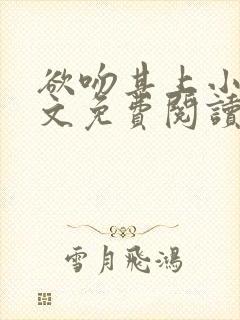 欲吻其上小
文免費閱讀
雪月飛鴻